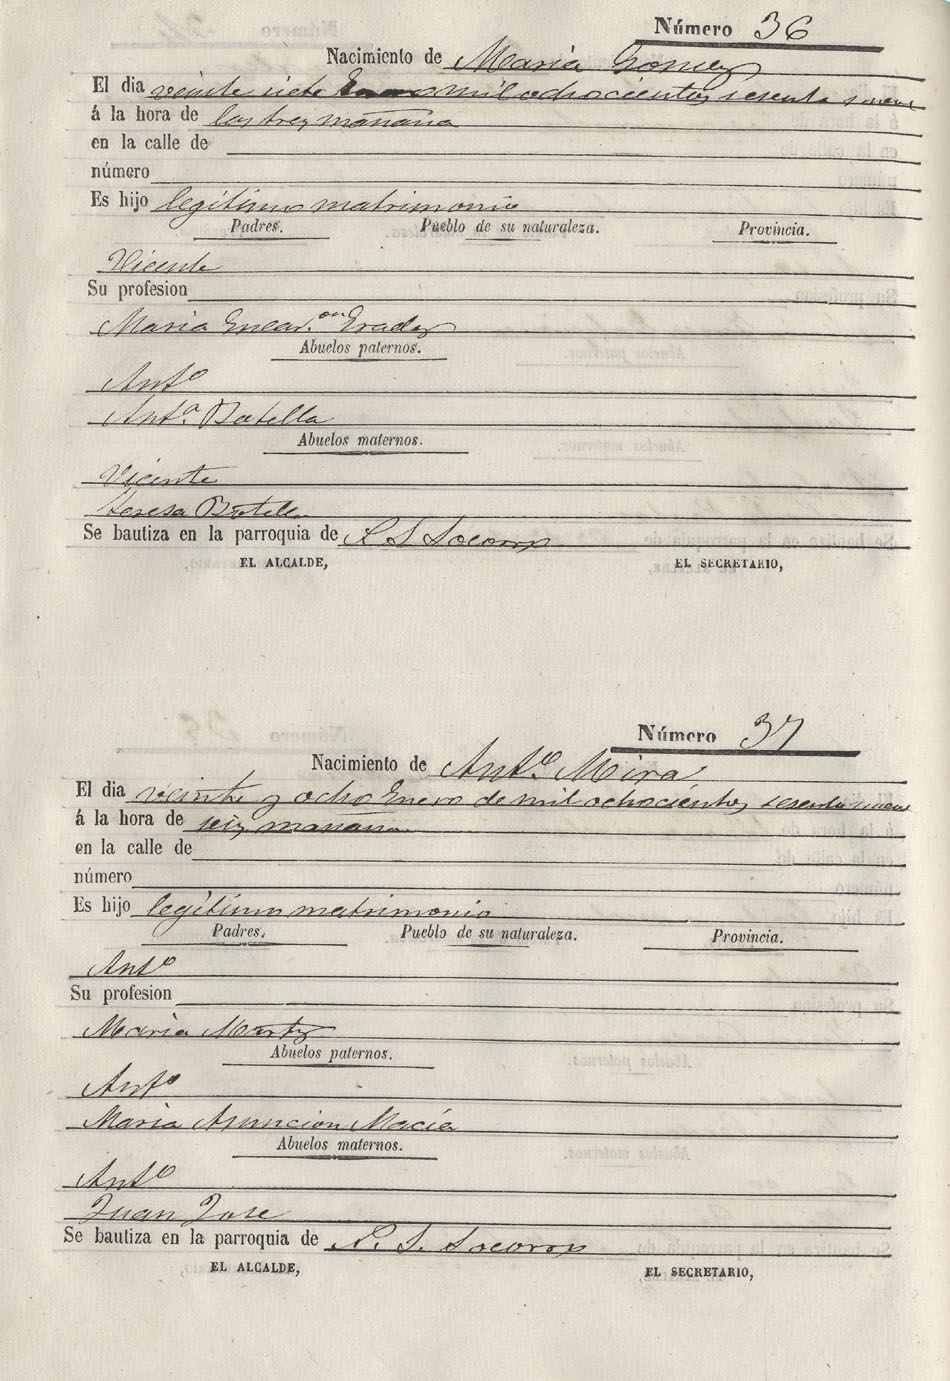 Número 36
Nacimiento de Maria Gomez
El dia veinte siete Enero mil ochocientos sesenta nueve
á la hora de las tres mañana
en la calle de
número
Es hijo legitimo matrimonio
Padres. Pueblo de su naturaleza. Provincia.
Vicente
Su profesion
Maria Encar.on Grades
Abuelos paternos.
Anto
Anta. Botella
Abuelos maternos.
Vicente
Teresa Botella
Se bautiza en la parroquia de N. S. Socorro
EL ALCALDE, EL SECRETARIO,
Número 37
Nacimiento de Anto. Mira
El dia veinte y ocho Enero de mil ochocientos sesenta nueve
á la hora de seis mañana
en la calle de
número
Es hijo legitimo matrimonio
Padres. Pueblo de su naturaleza. Provincia.
Anto
Su profesion
Maria
Abuelos paternos.
Anto
Maria Asuncion Macia
Abuelos maternos.
Anto
Juan Jose
Se bautiza en la parroquia de N. S. Socorro
EL ALCALDE, EL SECRETARIO,